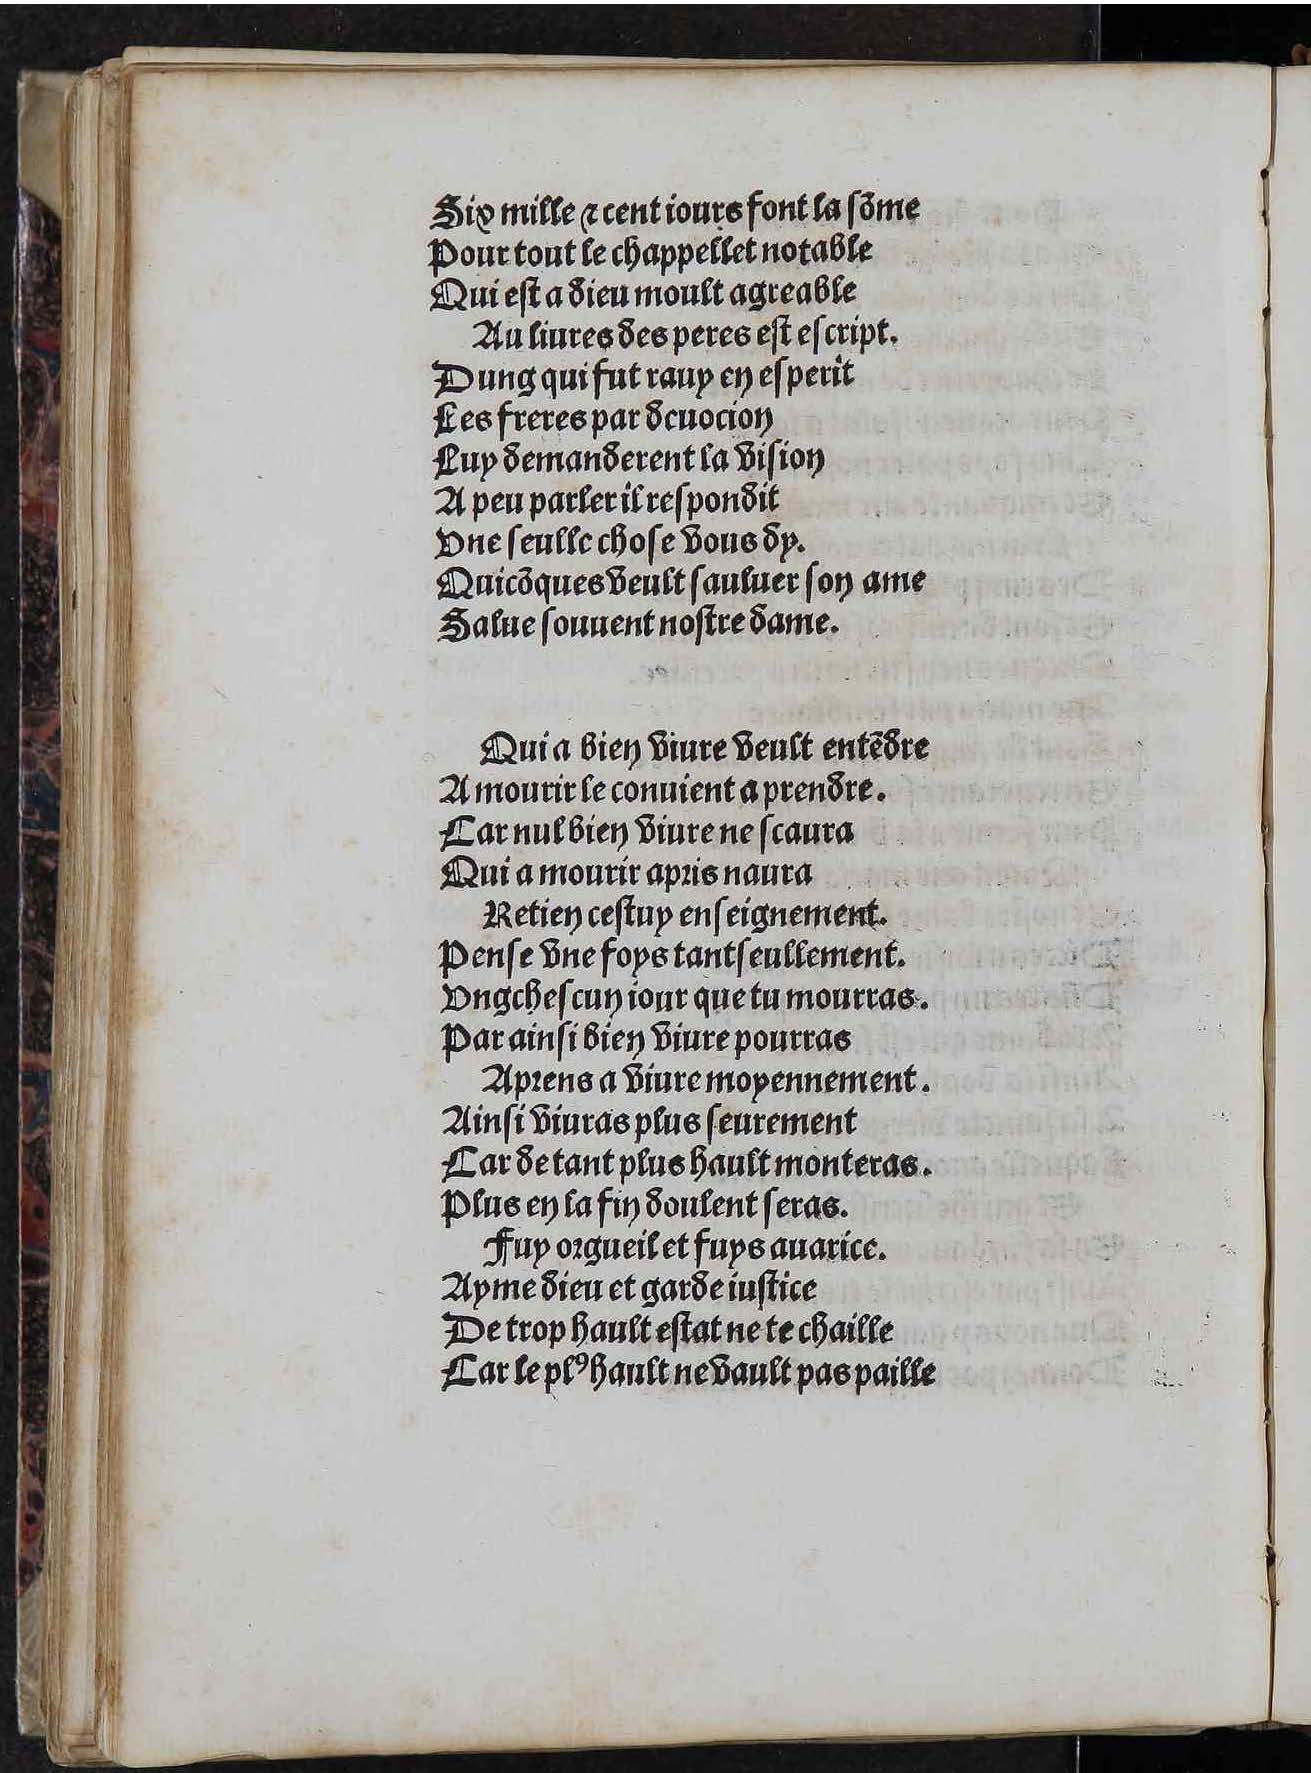 Six mille ⁊ cent iours font la sõme
Pour tout le chappellet notable
Qui est a dieu moult agreable
Au liures des peres est escript.
Dung qui fut rauy en esperit
Les freres par dcuocion
Luy demanderent la vision
A peu parler il respondit
Vne seullc chose vous dy.
Quicõques veult sauluer son ame
Salue souuent nostre dame.

Qui a bien viure veult entẽdre
A mourir le conuient aprendre.
Car nul bien viure ne scaura
Qui a mourir apris naura
Retien cestuy enseignement.
Pense vne foys tantseullement.
Vngchescun iour que tu mourras.
Par ainsi bien viure pourras
Aprens a viure moyennement.
Ainsi viuras plus seurement
Car de tant plus hault monteras.
Plus en la fin doulent seras.
Fuy orgueil et fuys auarice.
Ayme dieu et garde iustice
De trop hault estat ne te chaille
Car le plꝰ hault ne vault pas paille